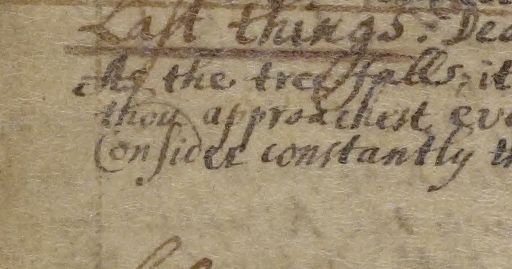 Last things: Dea
As the tree falls, it
thou approachest eve
Consider constantly th